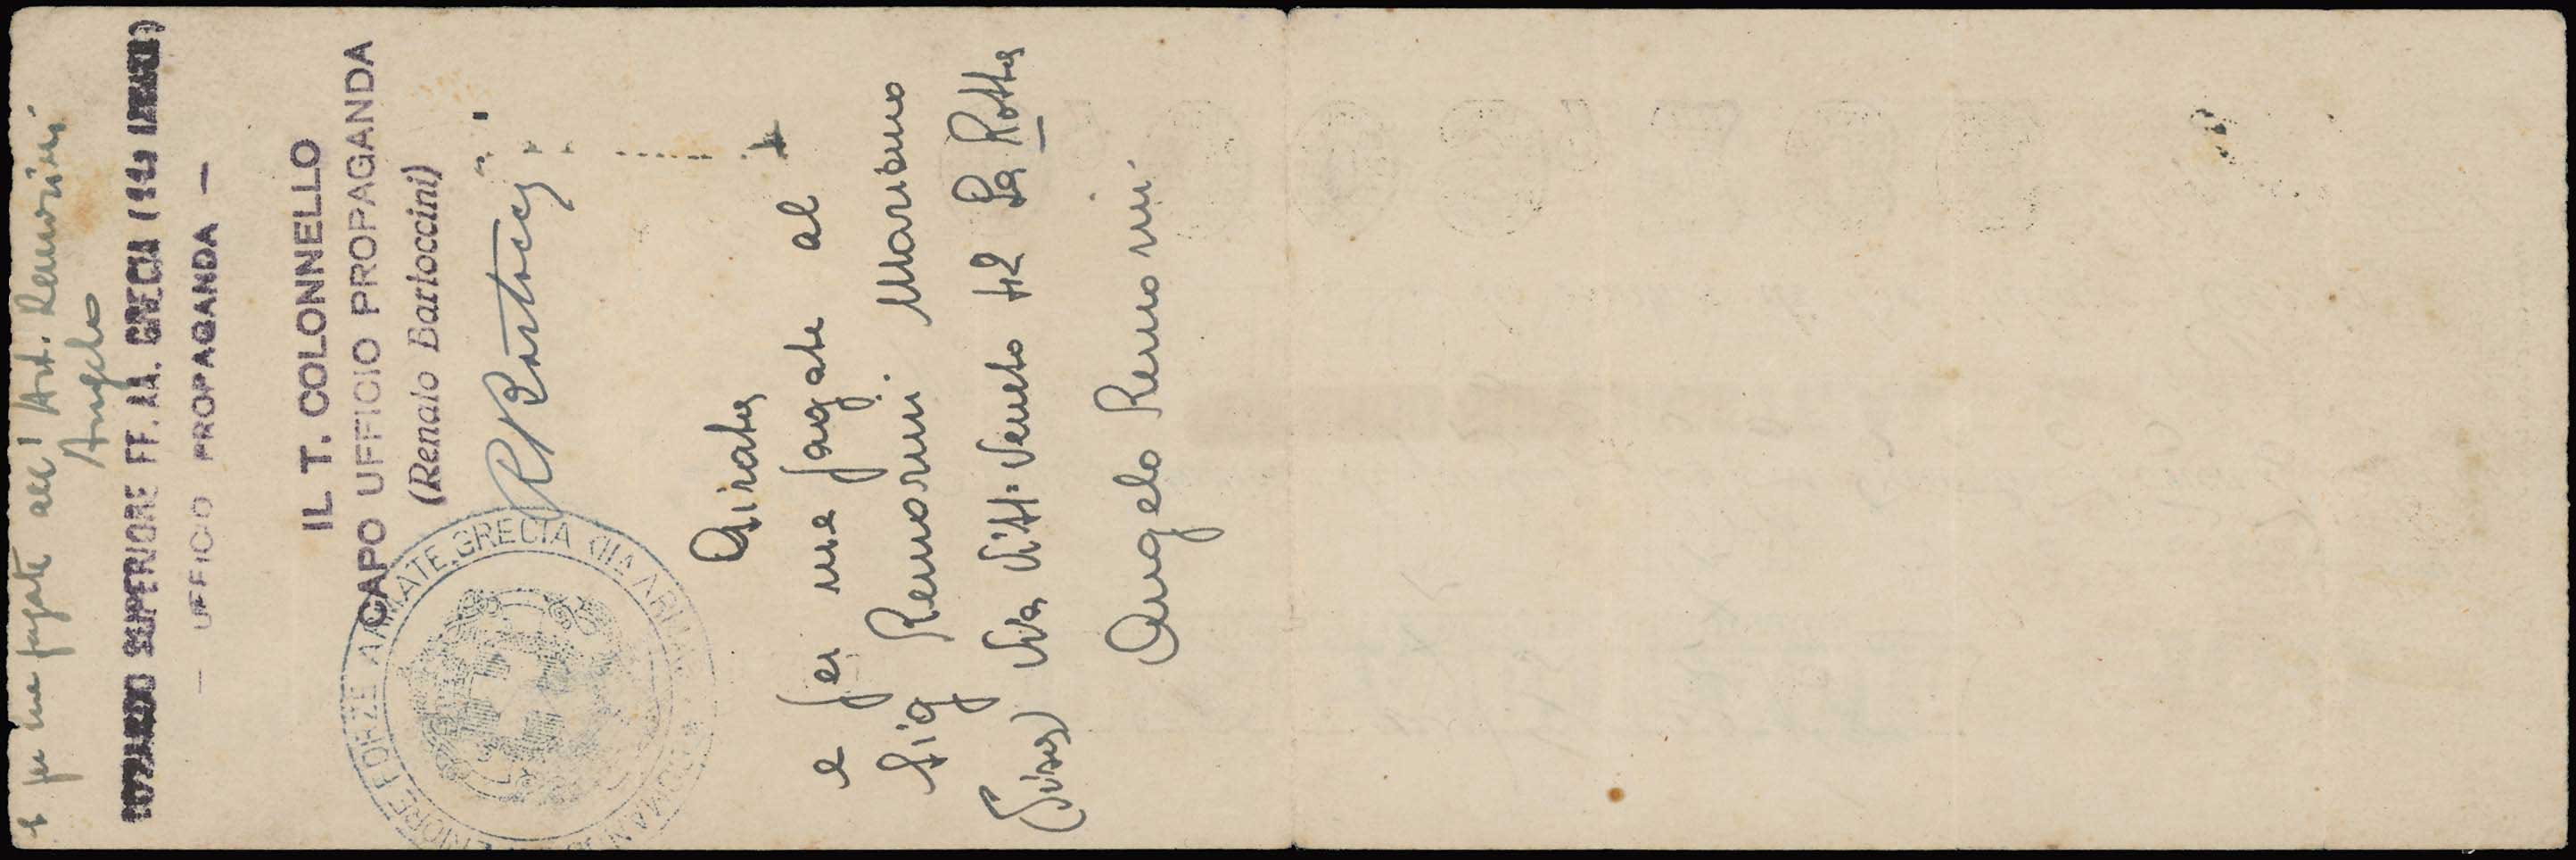 e per me pagate all' Art. Remorini
Angelo
COMANDO SUPERIORE FF. AA. GRECIA
— UFFICIO PROPAGANDA —
IL T. COLONNELLO
CAPO UFFICIO PROPAGANDA
(Renato Bartoccini)
R Bartoccini
COMANDO SUPERIORE FORZE ARMATE GRECIA
Girata
e per me pagate al
Sig Remorini Maribruno
(Pisa) Via Vitt: Veneto 42 La Rotta
Angelo Remorini